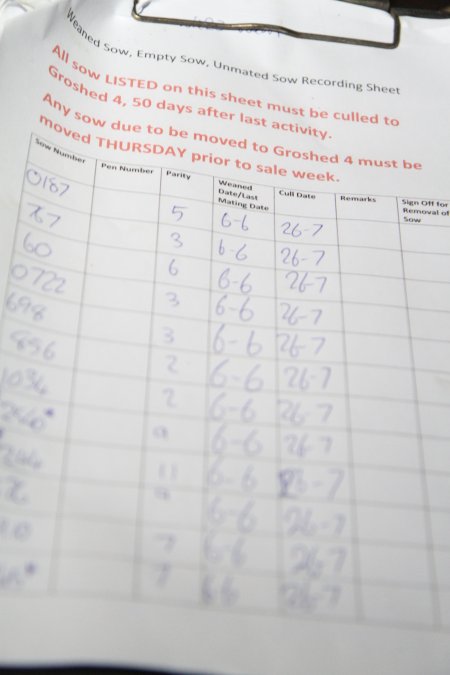 Weaned Sow, Empty Sow, Unmated Sow Recording Sheet
All sow LISTED on this sheet must be culled to
Groshed 4, 50 days after last activity.
Any sow due to be moved to Groshed 4 must be
moved THURSDAY prior to sale week.
Sow Number Pen Number Parity Weaned Date/Last Mating Date Cull Date Remarks Sign Off for Removal of Sow
0187 5 6-6 26-7
77 3 6-6 26-7
60 6 6-6 26-7
0722 3 6-6 26-7
698 3 6-6 26-7
896 2 6-6 26-7
1034 2 6-6 26-7
6-6 26-7
11 6-6 26-7
6-6 26-7
7 6-6 26-7
7 6-6 26-7